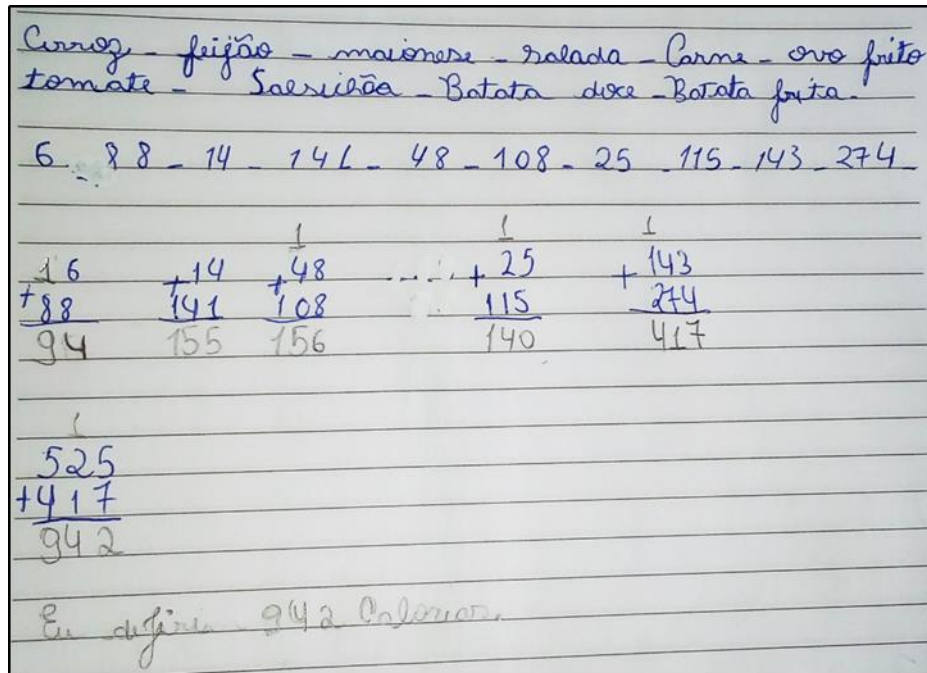 Arroz - feijão - maionese - salada - Carne - ovo frito
tomate - Salsichão - Batata doce - Batata frita.
6 - 88 - 14 - 141 - 48 - 108 - 25 - 115 - 143 - 274 -
1 1 1
16 +14 +48 ..... + 25 + 143
+88 141 108 115 274
94 155 156 140 417
1
525
+417
942
Eu 942 Calorias.